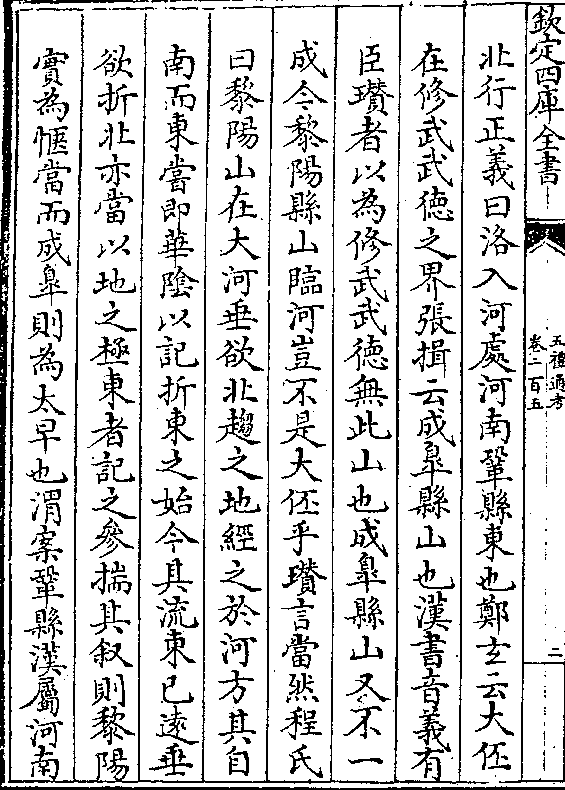 欽定四庫全書
五禮通考
卷二百五
二
北行正義曰洛入河處河南鞏縣東也鄭玄云大伾
在修武武德之界張揖云成臯縣山也漢書音義有
臣瓚者以為修武武德無此山也成臯縣山又不一
成今黎陽縣山臨河豈不是大伾乎瓚言當然程氏
曰黎陽山在大河垂欲北趨之地經之於河方其自
南而東嘗即華陰以記折東之始今其流東已逺垂
欲折北亦當以地之極東者記之參揣其叙則黎陽
實為愜當而成臯則為太早也渭案鞏縣漢屬河南